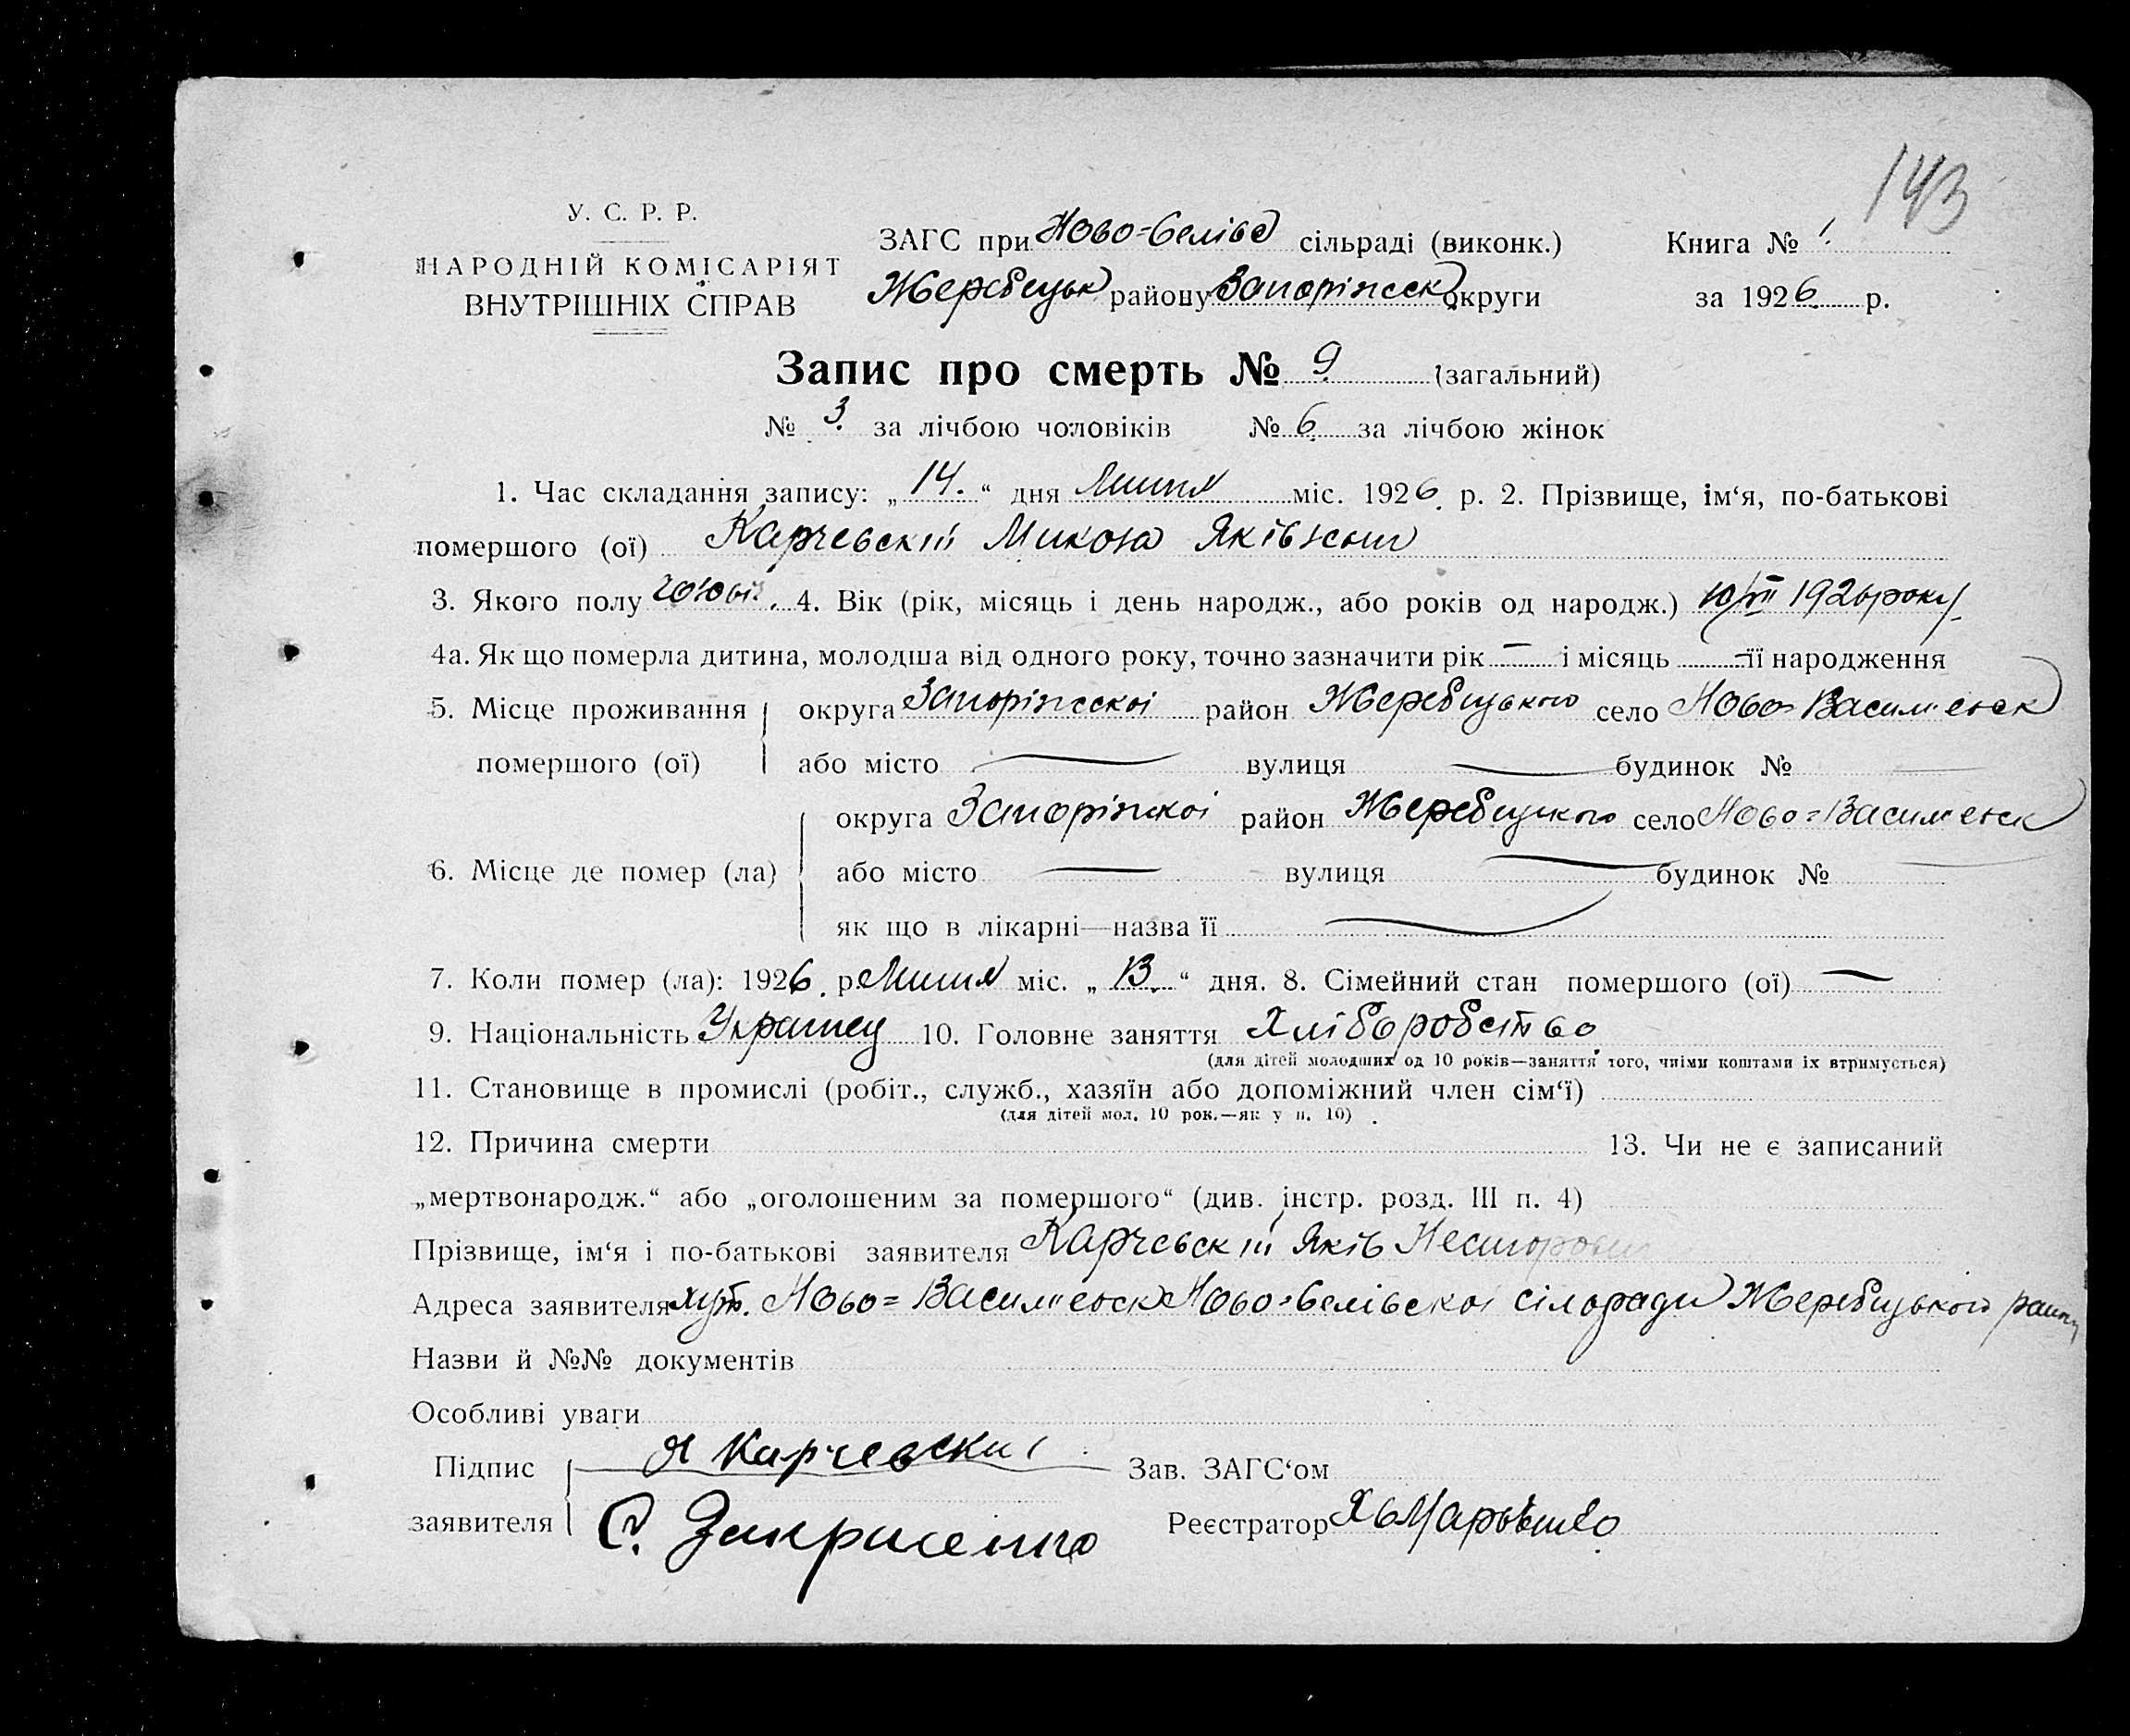 143
У. С. Р. Р.
НАРОДНІЙ КОМІСАРІЯТ
ВНУТРІШНІХ СПРАВ
ЗАГС при Ново=Беліво сільраді (виконк.)
Жеребецьк району Запоріжск округи
Книга № 1.
за 1926 р.
Запис про смерть № 9 (загальний)
№ 3. за лічбою чоловіків № 6 за лічбою жінок
1. Час складання запису: „14.“ дня Липня міс. 1926. р. 2. Прізвище, ім‘я, по-батькові
помершого (ої) Карчевскій Микола Яківович
3. Якого полу 4. Вік (рік, місяць і день народж., або років од народж.) 10/VII 1926 року
4а. Як що померла дитина, молодша від одного року, точно зазначити рік — і місяць — її народження
5. Місце проживання помершого (ої) округа Запоріжскоі район Жеребецького село Ново=Васил
або місто — вулиця — будинок № —
6. Місце де помер (ла) округа Запоріжкоі район Жеребецького село Ново=Васил
або місто — вулиця — будинок № —
як що в лікарні—назва її —
7. Коли помер (ла): 1926. р. Липня міс. „13.“ дня. 8. Сімейний стан помершого (ої) —
9. Національність Украінец 10. Головне заняття Хліборобство
(для дітей молодших од 10 років—заняття того, чиїми коштами їх втримується)
11. Становище в промислі (робіт., служб., хазяїн або допоміжний член сім‘ї)
(для дітей мол. 10 рок.—як у п. 10)
12. Причина смерти 13. Чи не є записаний
„мертвонародж.“ або „оголошеним за помершого“ (див. інстр. розд. III п. 4)
Прізвище, ім‘я і по-батькові заявителя Карчевскій Яків
Адреса заявителя хут. Ново=Васил Ново=Белівскоі сілоради Жеребецького
Назви й №№ документів
Особливі уваги
Підпис заявителя Я Карчевский
Зав. ЗАГС‘ом
Реєстратор